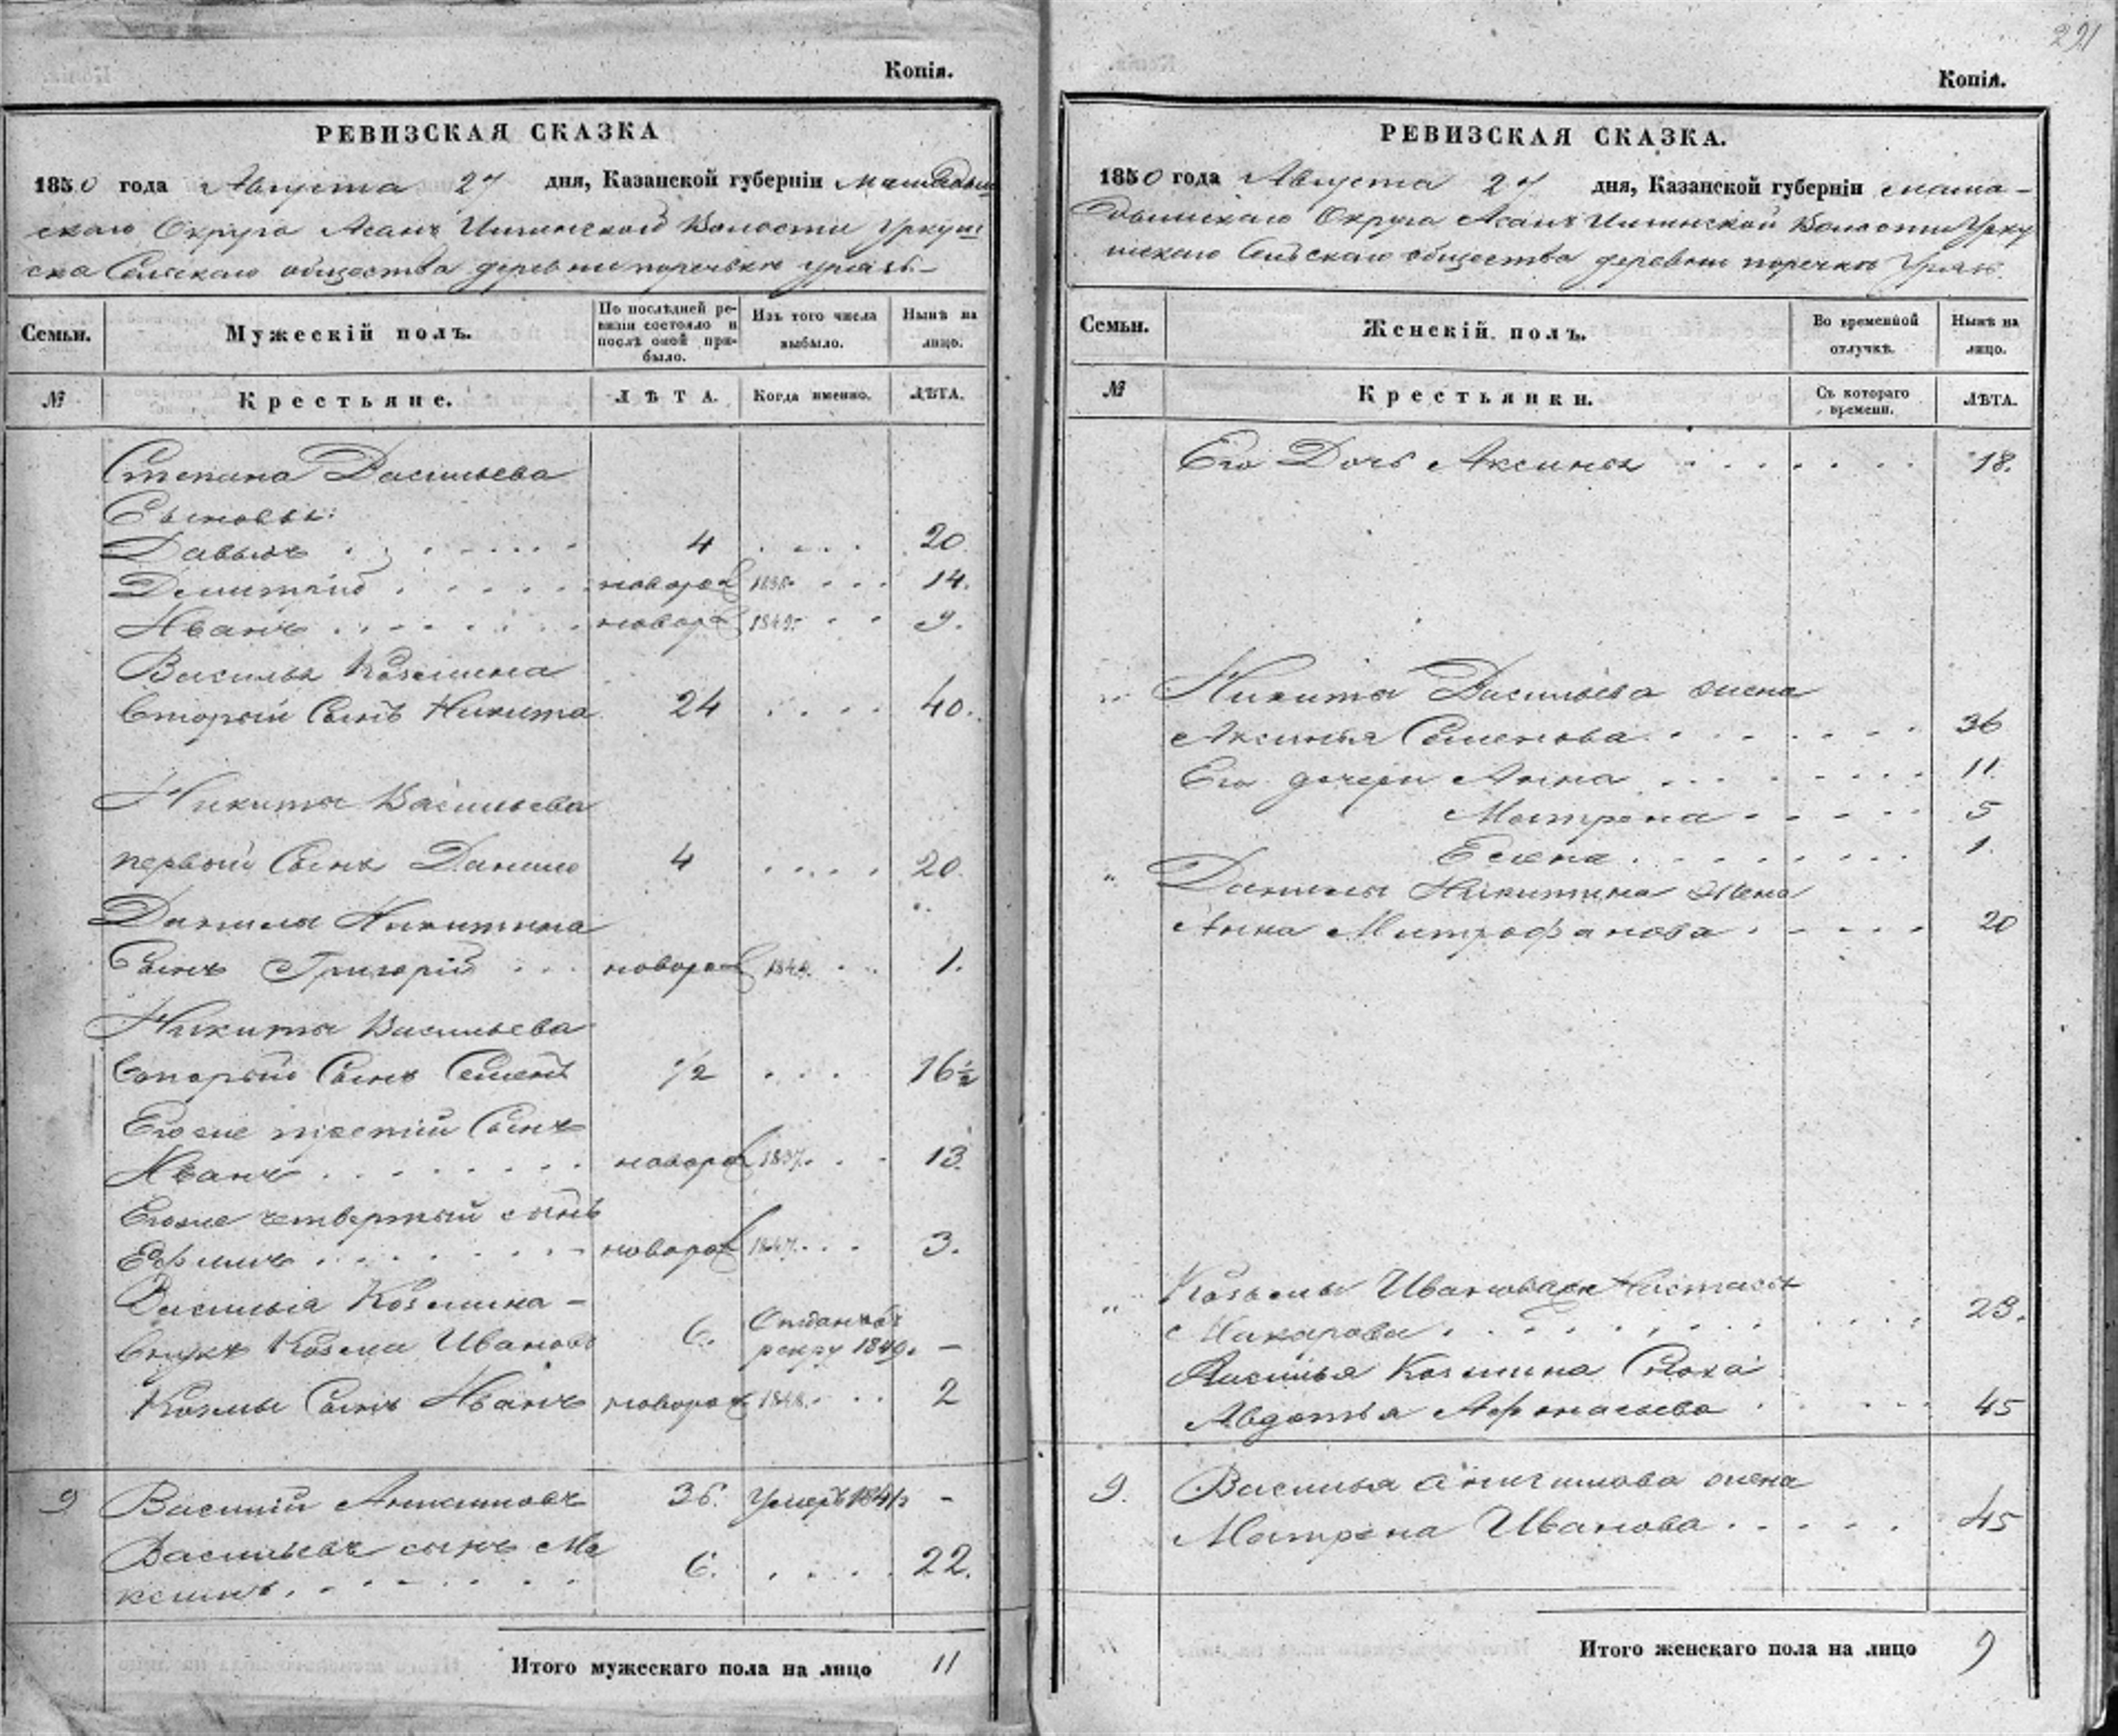 Копія.
РЕВИЗСКАЯ СКАЗКА
1850 года Августа 27 дня, Казанской губерніи Мамадыш
скаго Округа Асанъ Илинской Волости Уркуш
ска Сельскаго общества деревни поречьки
Семьи.
Мужескій полъ.
По послѣдней ре-
визіи состояло и
послѣ оной при-
было.
Изъ того числа
выбыло.
Нынѣ на
лицо.
№
Крестьяне.
ЛѢТА.
Когда именно.
ЛѢТА.
Степана Васильева
Сыновья:
Давыдъ 4 20
Демитрий новорож 14.
Иванъ новор 9.
Василья Козмина
второй Сынъ Никита 24 40.
Никиты Васильева
первый Сынъ Данило 4 20.
Данилы Никитина
Сынъ Григорий новорож 1849. 1.
Никиты Васильева
второй Сынъ Семенъ 1/2 16 1/2
Егоже третий Сынъ
Иванъ новорож 1837. 13.
Егоже четвертый сынъ
Ефимъ новорож 1847. 3.
Василья Козмина -
внукъ Козма Ивановъ 6. Отданъ въ рекру 1849. —
Козмы Сынъ Иванъ новорож 1848. 2
9 Василий Аникимовъ 36. Умеръ 1841 -
Васильевъ сынъ Ма
ксимъ. 6. 22.
Итого мужескаго пола на лицо 11
291
Копія.
РЕВИЗСКАЯ СКАЗКА.
1850 года Августа 27 дня, Казанской губерніи мама-
дышскаго Округа Асанъ Илинской Волости Урку
шскаго Сельскаго общества деревни поречки
Семьи.
Женскій полъ.
Во временной
отлучкѣ.
Нынѣ на
лицо.
№
Крестьянки.
Съ котораго
времени.
ЛѢТА.
Его Дочь Аксинья 18.
" Никиты Васильева жена
Аксинья Семенова 36
Его дочери Анна 11.
Матрена 5
Елена 1.
" Данилы Никитина жена
Анна Митрофанова 20
" Козьмы Иванова жена Настасья
Макарова 23.
Василья Козмина Сноха
Авдотья Афонасьева 45
9. Василья Аникимова жена
Матрена Иванова 45
Итого женскаго пола на лицо 9